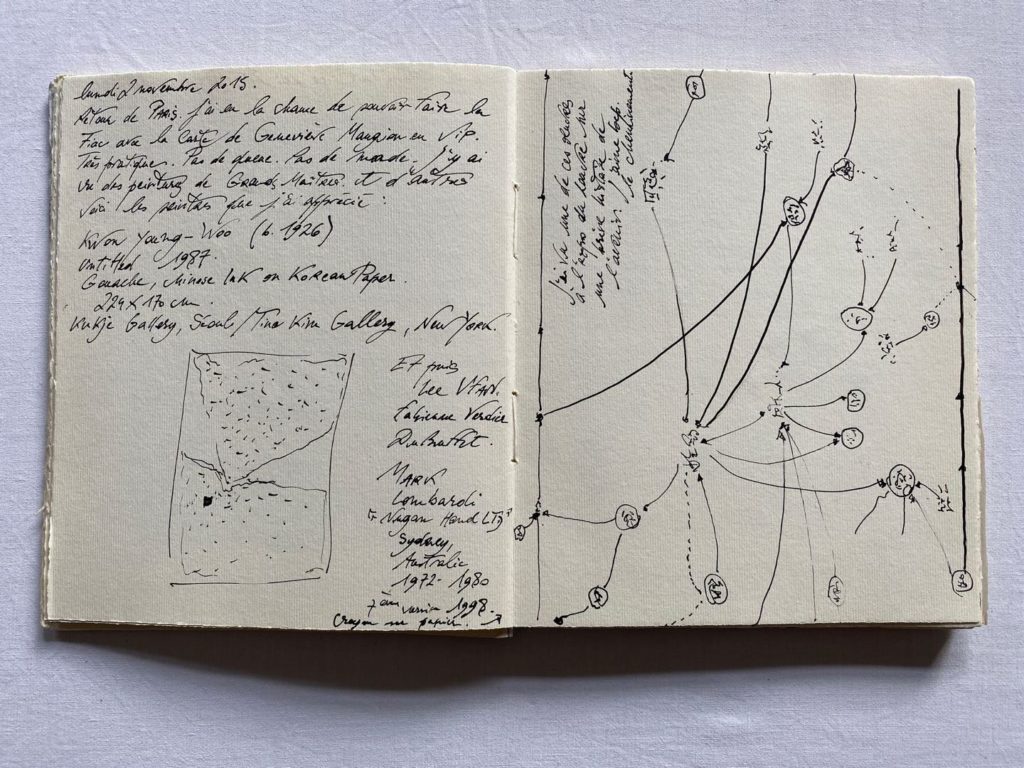 lundi 2 novembre 2015.
Retour de PARIS. j'ai eu la chance de pouvoir faire la
Fiac avec la carte de Geneviève Mangion en Vip.
Très pratique. Pas de queue. Pas de monde. j'y ai
vu des peintures de Grands Maîtres et d'autres
Voici les peintres que j'ai apprécié :
KWON Young-Woo (b. 1926)
Untitled 1987.
Gouache, Chinese Ink on Korean Paper.
224 x 170 cm.
Kukje Gallery, Seoul / Tina Kim Gallery, New York.
Et puis
Lee UFAN.
Fabienne Verdier
Dubuffet.
MARK
Lombardi
"Nugan Hand LTD"
Sydney,
Australie
1972-1980
7ème version 1998.
Crayon sur papier.
j'ai vu une de ces œuvres
à l'expo du Louvre sur
une brève histoire de
l'avenir. j'aime bcp.
le cheminement